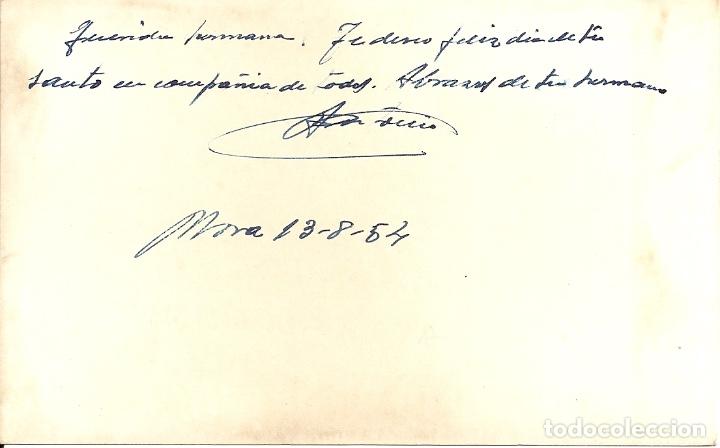 Querida hermana. Te deseo feliz dia de tu
santo en compañia de todos. Abrazos de tu hermano
Antonio
Mora 13-8-54
todocoleccion